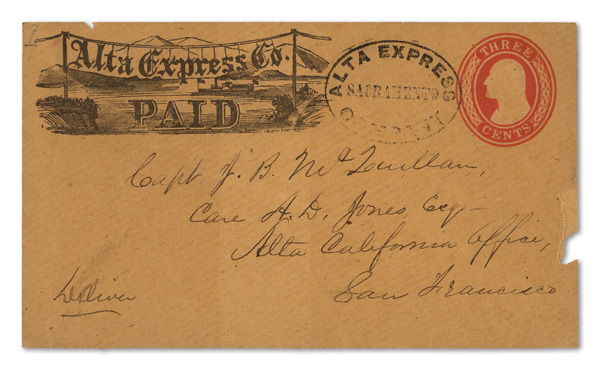 Alta Express Co.
PAID
ALTA EXPRESS
SACRAMENTO
COMPANY
THREE
CENTS
Capt J. B. Mc
Care H. D. Jones, Esq
Alta California Office,
San Francisco
Deliver